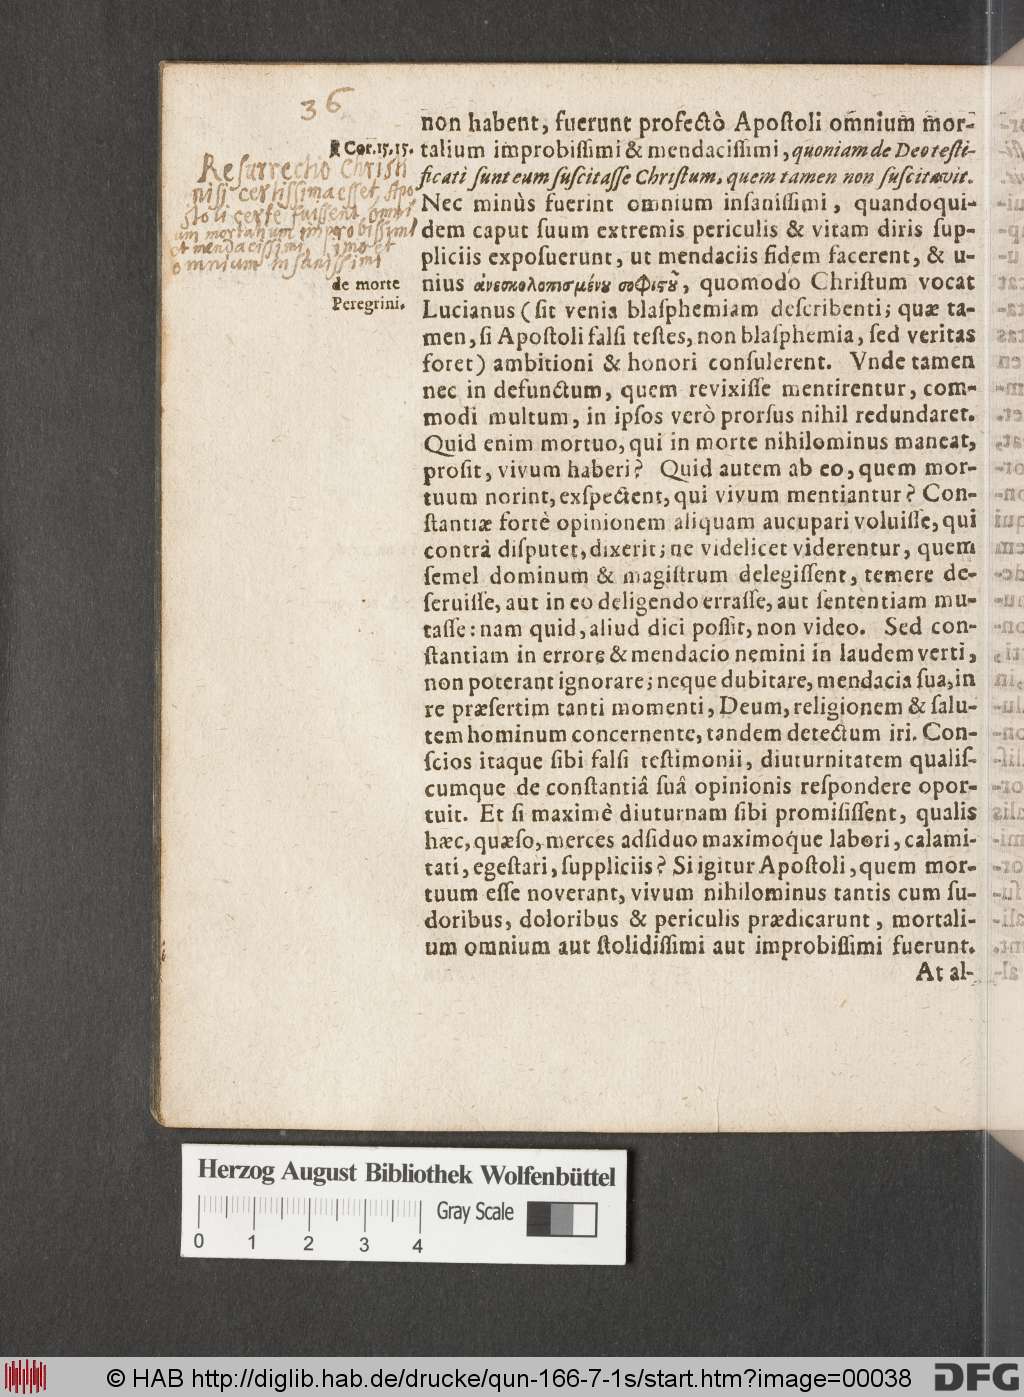 36
non habent, fuerunt profectò Apoſtoli omnium mor-
1 Cor. 15. 15.
talium improbiſſimi & mendaciſſimi, quoniam de Deo teſti-
ficati ſunt eum ſuſcitaſſe Chriſtum, quem tamen non ſuſcitavit.
Nec minùs fuerint omnium inſaniſſimi, quandoqui-
dem caput ſuum extremis periculis & vitam diris ſup-
pliciis expoſuerunt, ut mendaciis fidem facerent, & u-
Resurrectio Christi
nisi certissima esset, Apo
stoli certe fuissent omni
um mortalium improbissimi
et mendacissimi, imo et
omnium insanissimi
de morte
Peregrini.
nius ἀνεσκολοπισμένου σοφιστοῦ, quomodo Chriſtum vocat
Lucianus (ſit venia blaſphemiam deſcribenti; quæ ta-
men, ſi Apoſtoli falſi teſtes, non blaſphemia, ſed veritas
foret) ambitioni & honori conſulerent. Vnde tamen
nec in defunctum, quem revixiſſe mentirentur, com-
modi multum, in ipſos verò prorſus nihil redundaret.
Quid enim mortuo, qui in morte nihilominus maneat,
proſit, vivum haberi? Quid autem ab eo, quem mor-
tuum norint, exſpectent, qui vivum mentiantur? Con-
ſtantiæ fortè opinionem aliquam aucupari voluiſſe, qui
contrà diſputet, dixerit; ne videlicet viderentur, quem
ſemel dominum & magiſtrum delegiſſent, temere de-
ſeruiſſe, aut in eo deligendo erraſſe, aut ſententiam mu-
taſſe: nam quid, aliud dici poſſit, non video. Sed con-
ſtantiam in errore & mendacio nemini in laudem verti,
non poterant ignorare; neque dubitare, mendacia ſua, in
re præſertim tanti momenti, Deum, religionem & ſalu-
tem hominum concernente, tandem detectum iri. Con-
ſcios itaque ſibi falſi teſtimonii, diuturnitatem qualiſ-
cumque de conſtantiâ ſuâ opinionis reſpondere opor-
tuit. Et ſi maximè diuturnam ſibi promiſiſſent, qualis
hæc, quæſo, merces adſiduo maximoq́ue labori, calami-
tati, egeſtati, ſuppliciis? Si igitur Apoſtoli, quem mor-
tuum eſſe noverant, vivum nihilominus tantis cum ſu-
doribus, doloribus & periculis prædicarunt, mortali-
um omnium aut ſtolidiſſimi aut improbiſſimi fuerunt.
At al-
Herzog August Bibliothek Wolfenbüttel
Gray Scale
0 1 2 3 4
© HAB http://diglib.hab.de/drucke/qun-166-7-1s/start.htm?image=00038
DFG